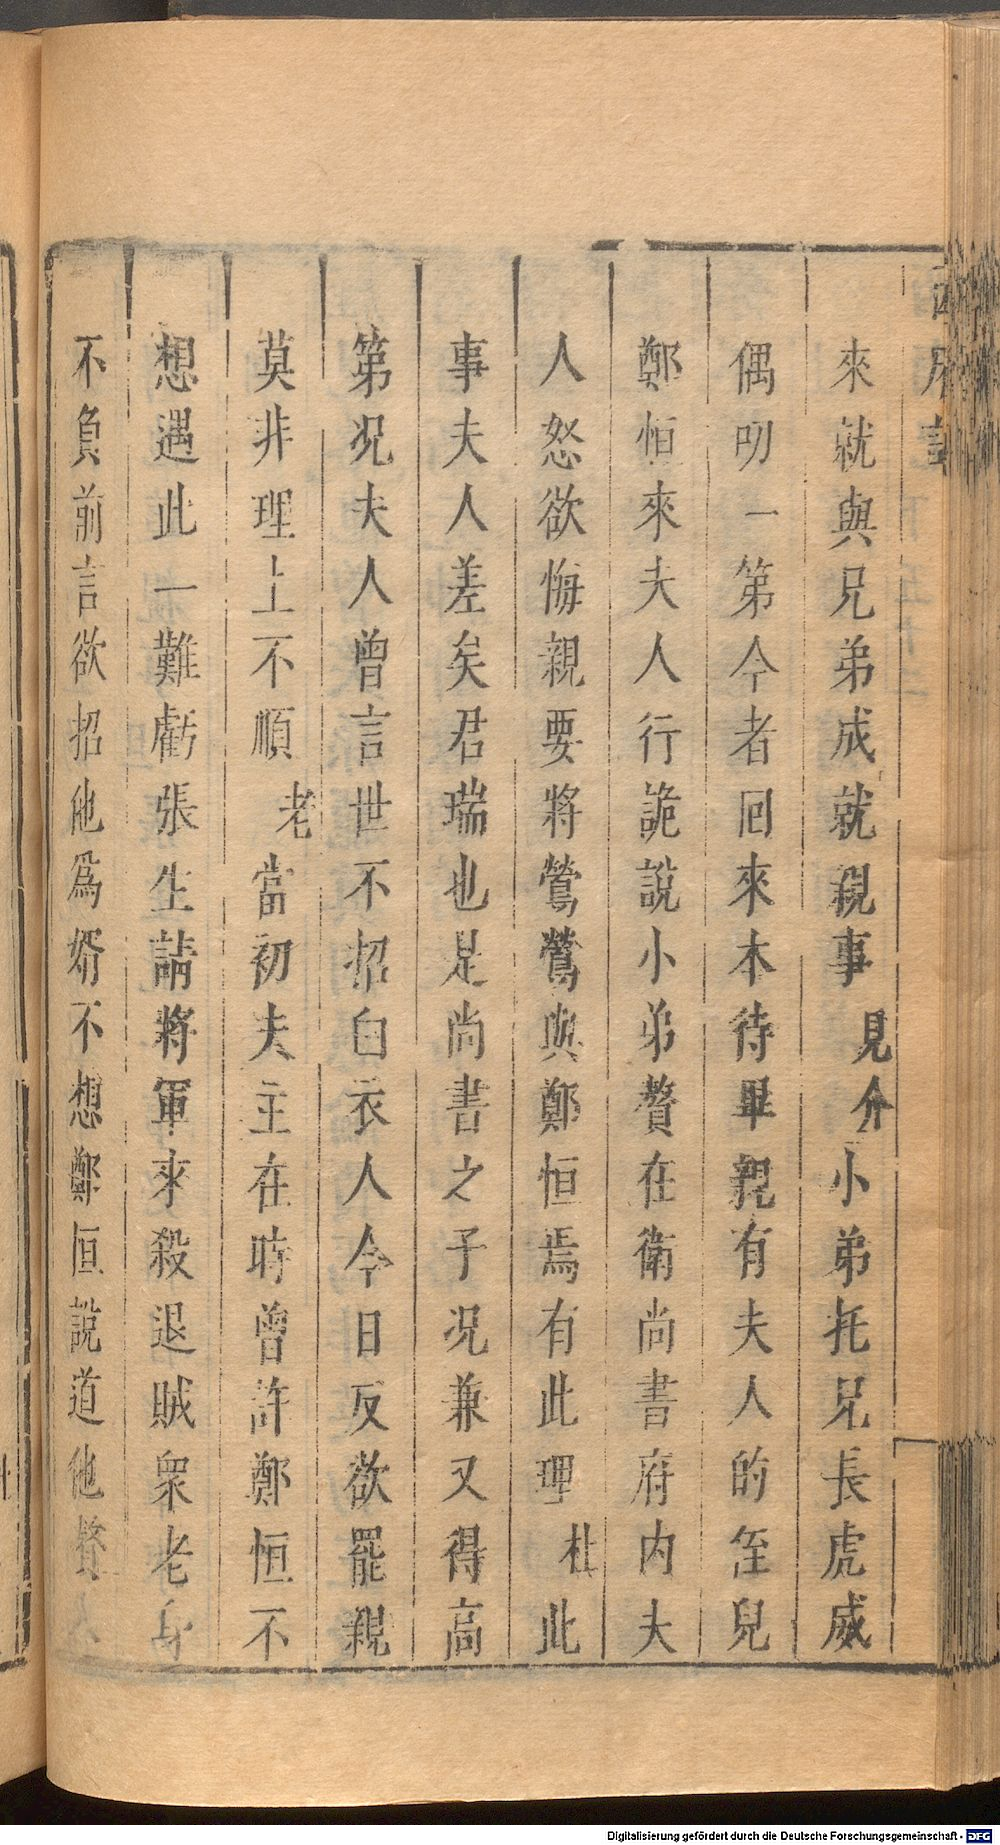 來就與兄弟成就親事見介小弟托兄長虎威
偶叨一第今者回來本待畢親有夫人的侄兒
鄭恒來夫人行詭說小弟贅在衛尚書府內夫
人怒欲悔親要將鶯鶯與鄭恒焉有此理杜此
事夫人差矣君瑞也是尚書之子况兼又得高
第况夫人曾言世不招白衣人今日反欲罷親
莫非理上不順老當初夫主在時曾許鄭恒不
想遇此一難虧張生請將軍來殺退賊衆老身
不負前言欲招他爲婿不想鄭恒說道他贅
Digitalisierung gefördert durch die Deutsche Forschungsgemeinschaft - DFG